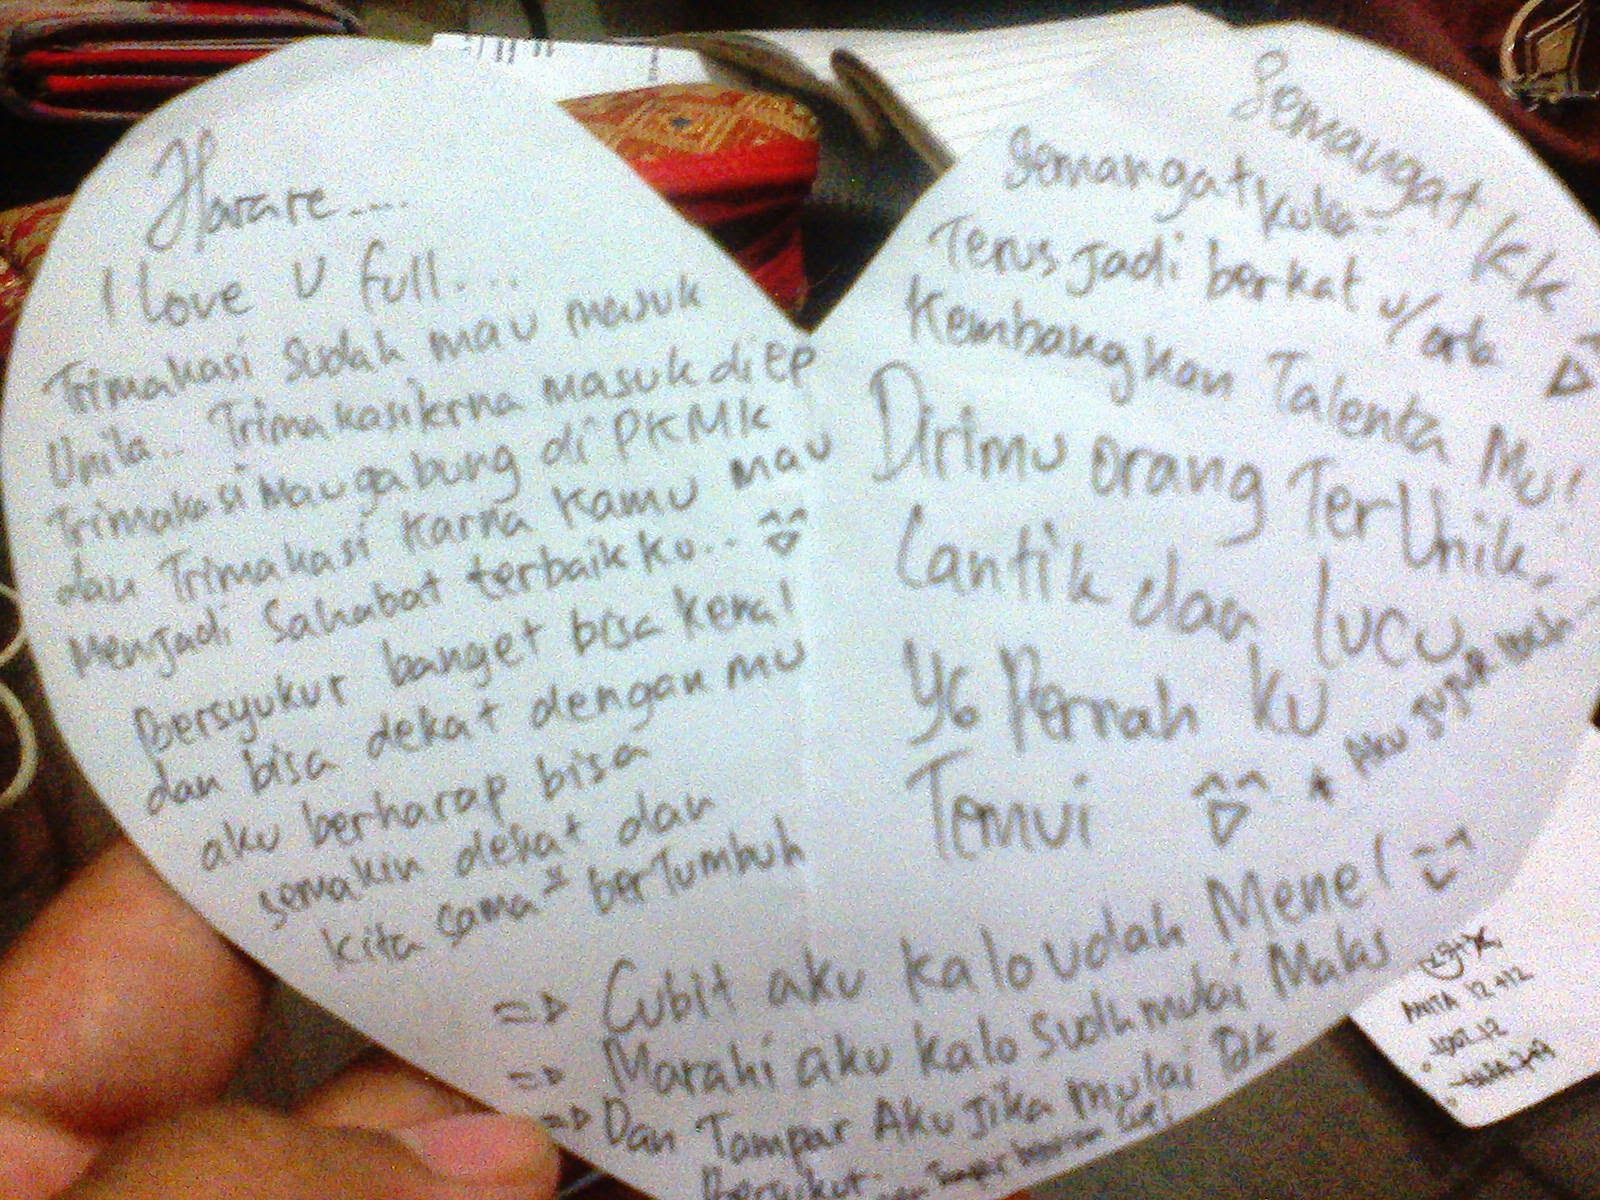 Harare....
I love U full...
Trimakasi sudah mau masuk
Unila.. Trimakasikrna masuk di EP
Trimakasi mau gabung di PKMK
dan Trimakasi karna kamu mau
Menjadi Sahabat terbaikku..
Bersyukur banget bisa kenal
dan bisa dekat dengan mu
aku berharap bisa
semakin dekat dan
kita sama² berTumbuh
Semangat KK
Semangat
Terus Jadi berkat u/
Kembangkan Talenta Mu!
Dirimu orang TerUnik,
Cantik dan lucu
yg Pernah ku
Temui
* Aku jujur
=> Cubit aku kalo udah Mene!
=> Marahi aku kalo sudh mulai Malas
=> Dan Tampar Aku jika mulai
ANITA 12+12